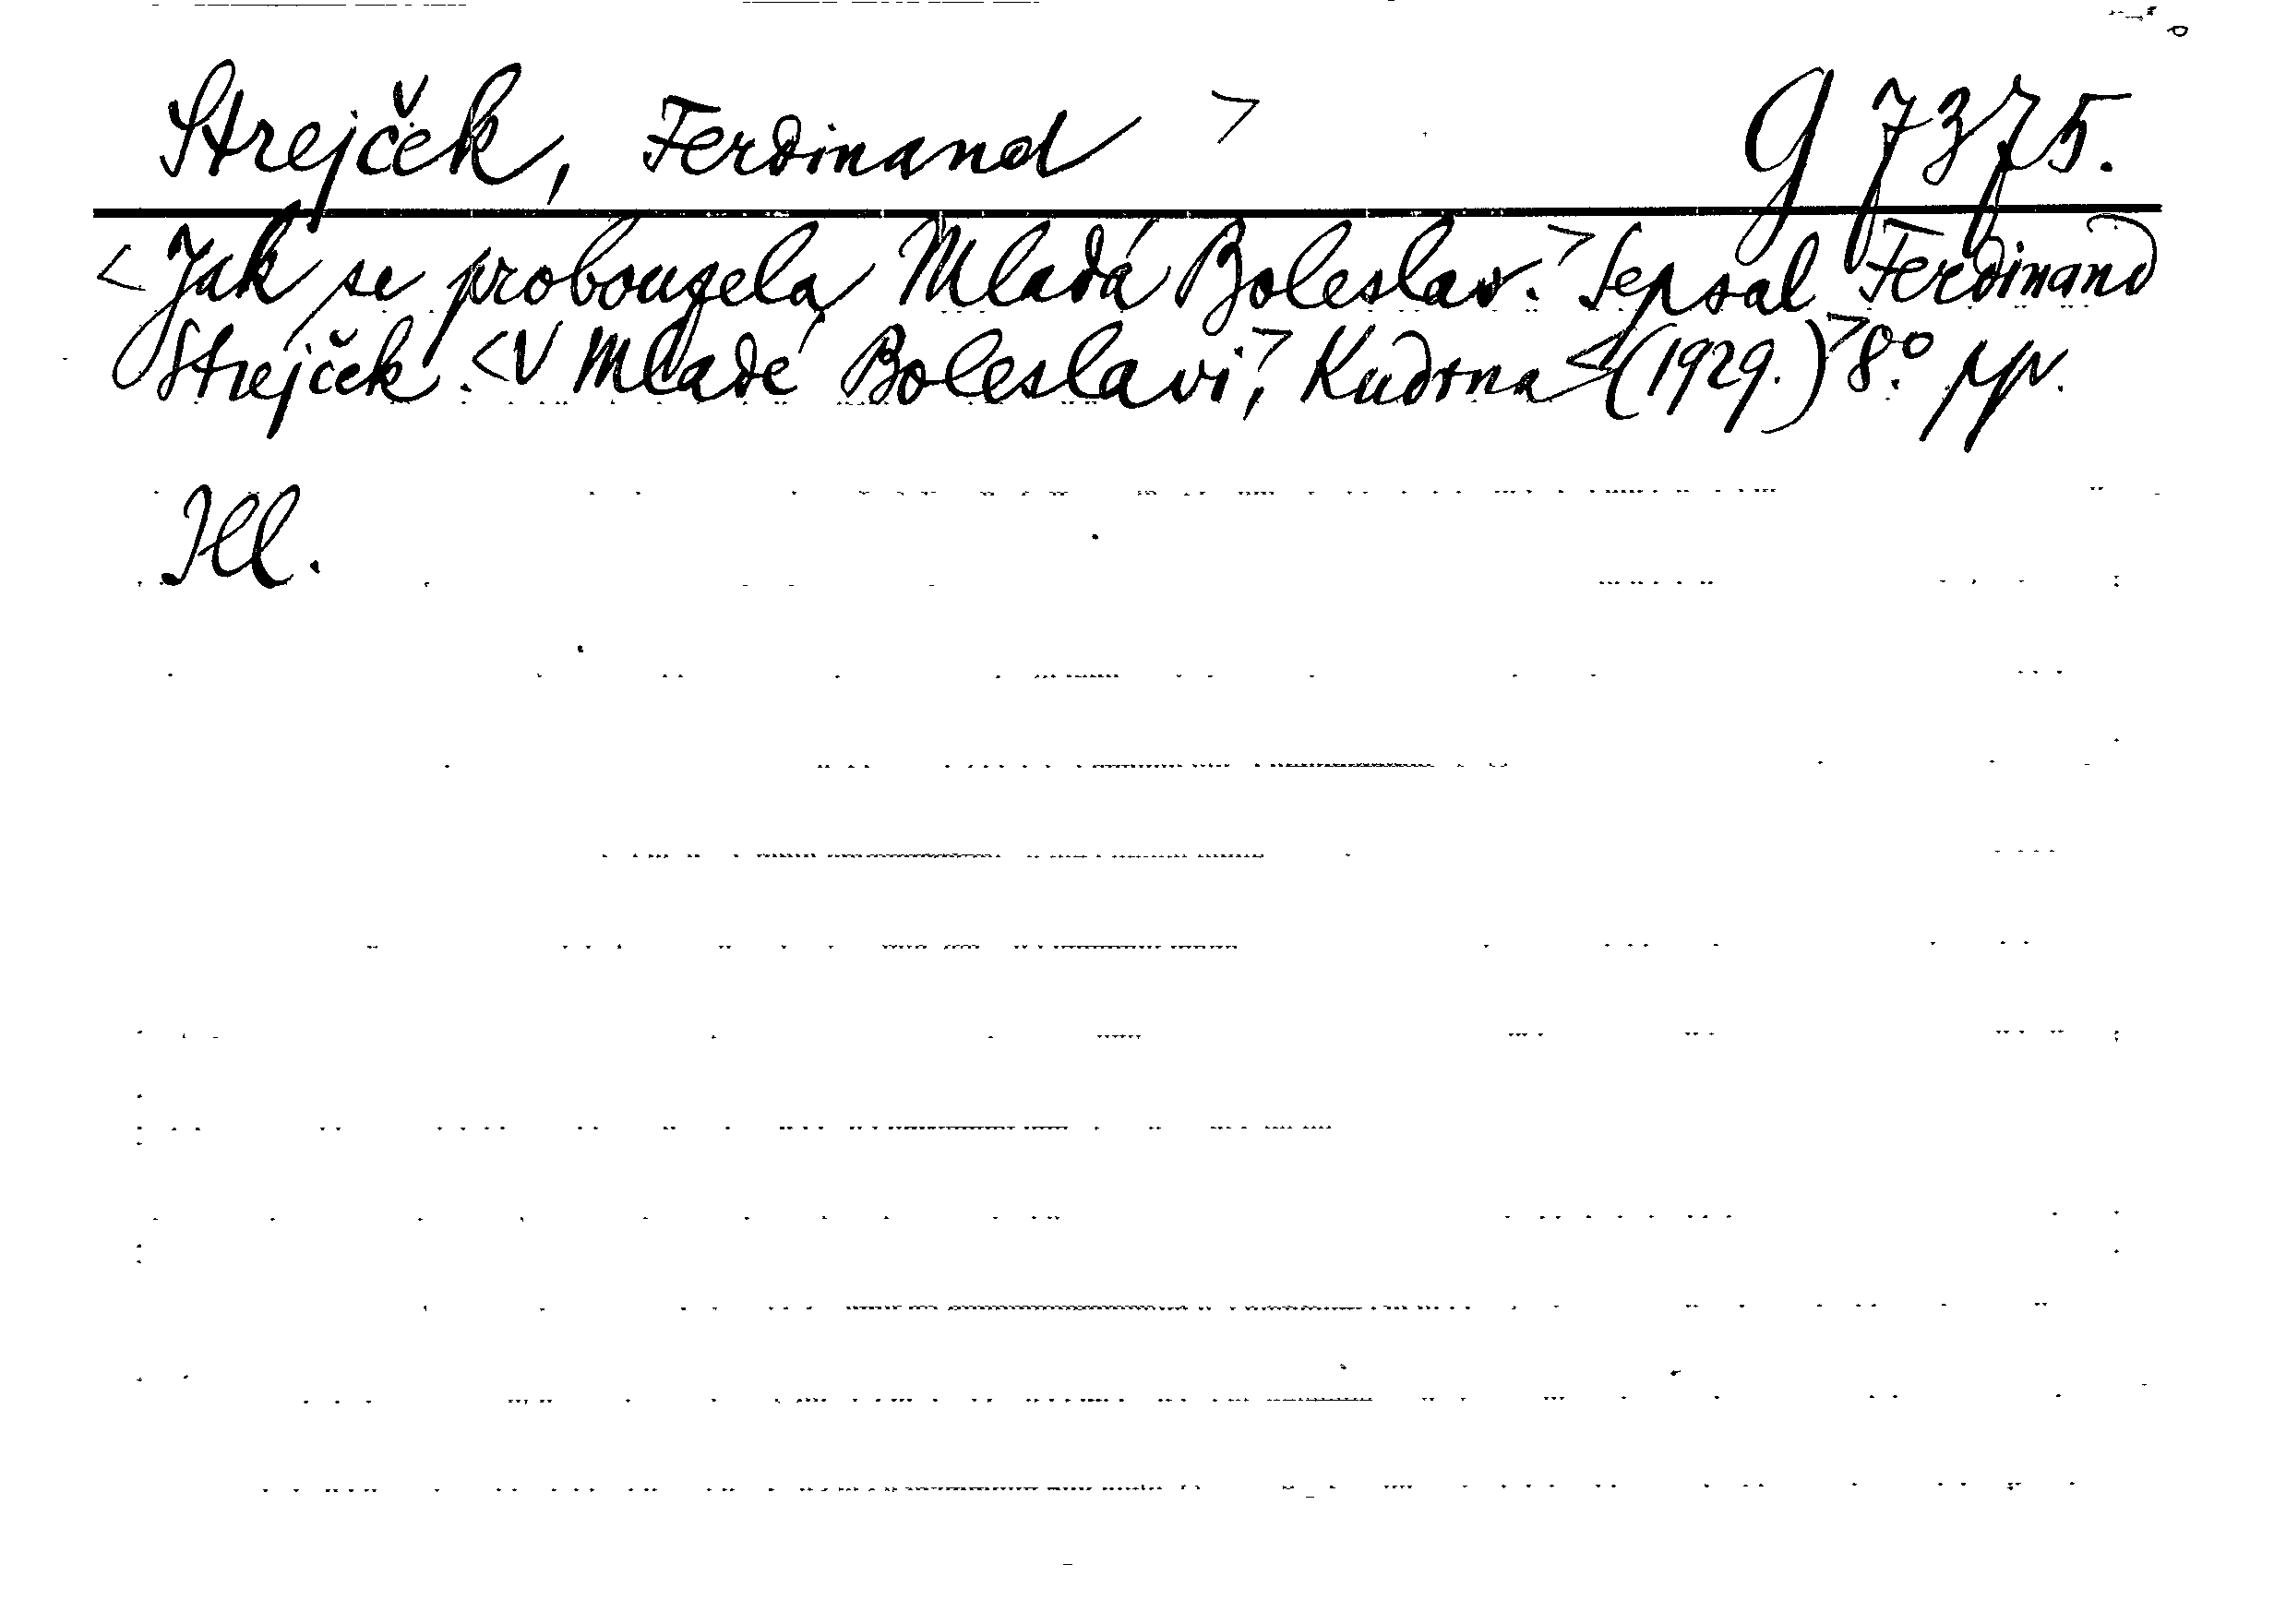 Strejček, Ferdinand > g 7375.
<Jak se probouzela Mladá Boleslav.> Sepsal Ferdinand
Strejček. <V Mladé Boleslavi>, Kudrna <(1929.)> 8.º ppv.
Ill.